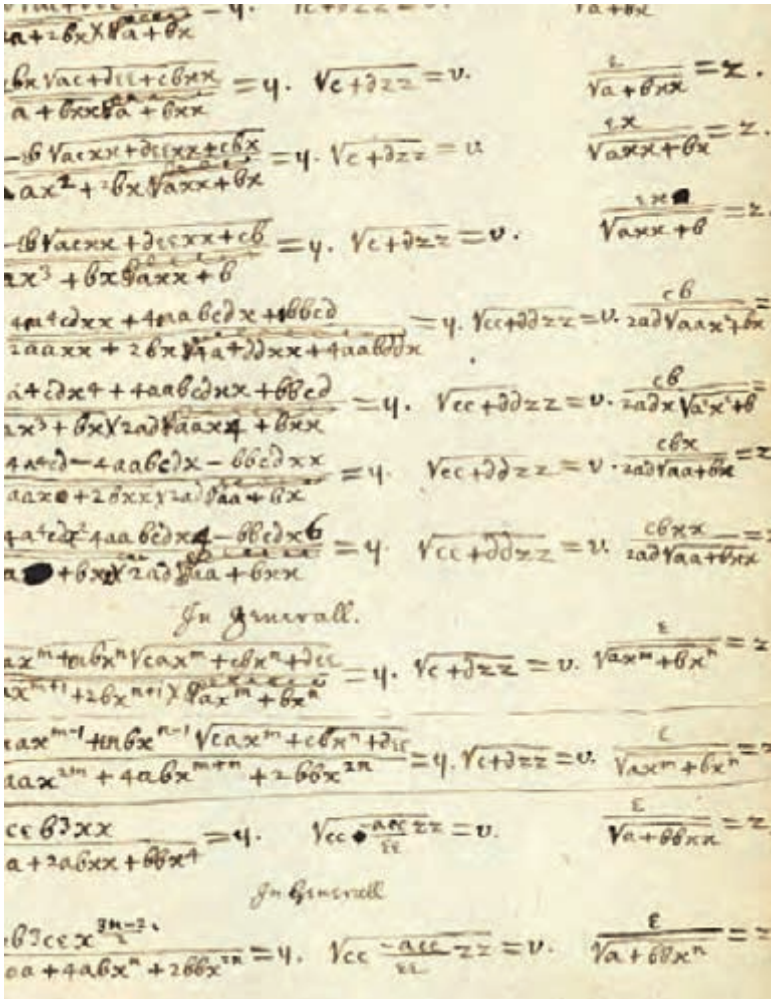 a+2bx × √a+bx
bx √ac+dεε+cbxx / a+bxx √a+bxx = y. √c+dzz = v. ε / √a+bxx = z.
b √acxx+dεεxx+cbx / ax²+2bx √axx+bx = y. √c+dzz = v. εx / √axx+bx = z.
b √acxx+dεεxx+cb / ax³+bx √axx+b = y. √c+dzz = v. εx / √axx+b = z.
4a⁴cdxx+4aabcdx+bbcd / 2aaxx+2bx √4a⁴ddxx+4aabddx = y. √cc+ddzz = v. cb / 2ad√aax²+bx =
a⁴cdx⁴+4aabcdxx+bbcd / x³+bx × 2ad √aax4+bxx = y. √cc+ddzz = v. cb / 2adx√a²x²+b =
4a⁴cd−4aabcdx−bbcdxx / aax+2bxx × 2ad √aa+bx = y. √cc+ddzz = v. cbx / 2ad√aa+bx = z
4a⁴cdx² 4aabcdx4−bbcdx6 / +bx × 2ad √aa+bxx = y. √cc+ddzz = v. cbxx / 2ad√aa+bxx =
In Generall.
axᵐ+nbxⁿ √caxᵐ+cbxⁿ+dεε / xᵐ⁺¹+2bxⁿ⁺¹ × √axᵐ+bxⁿ = y. √c+dzz = v. ε / √axᵐ+bxⁿ = z
axᵐ⁻¹+nbxⁿ⁻¹ √caxᵐ+cbxⁿ+dεε / aax²ᵐ+4abxᵐ⁺ⁿ+2bbx²ⁿ = y. √c+dzz = v. ε / √axᵐ+bxⁿ = z
cεb3xx / a+2abxx+bbx⁴ = y. √cc −acc/εε zz = v. ε / √a+bbxx = z
In Generall
b3cεx^(3n−2)/2 / aa+4abxⁿ+2bbx²ⁿ = y. √cc −acc/εε zz = v. ε / √a+bbxⁿ = z